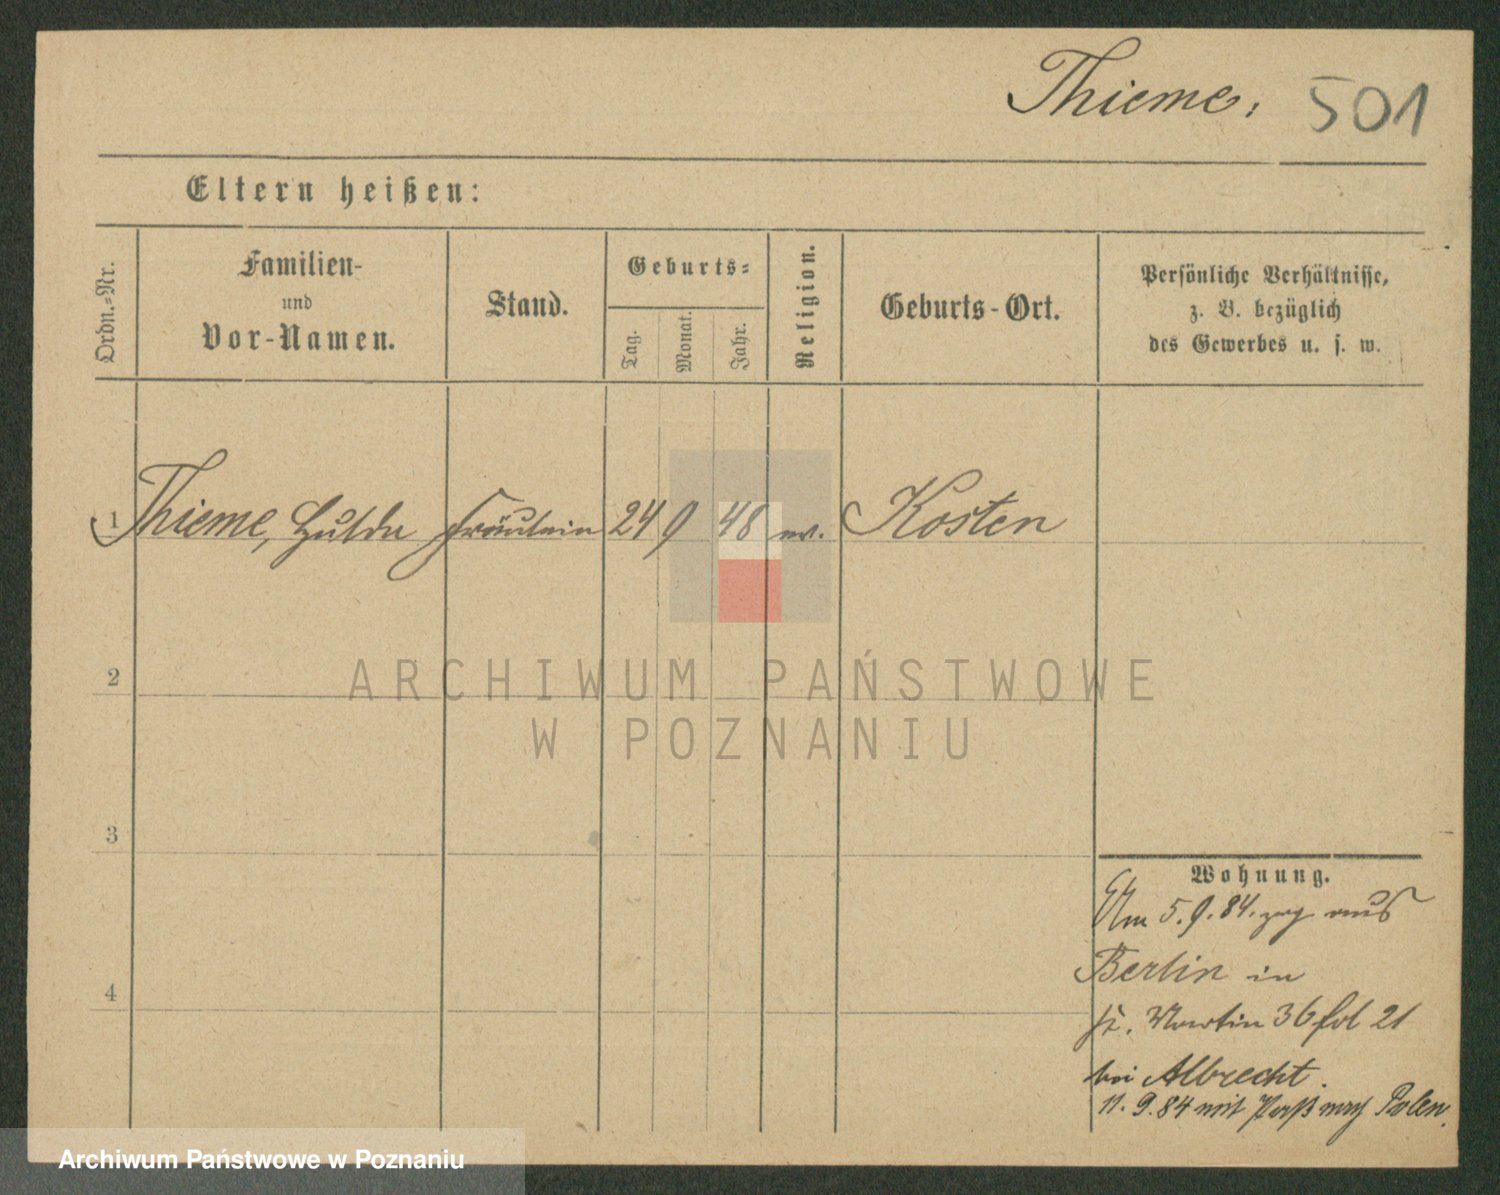 Thieme, 501
Eltern heißen:
Ordn.-Nr.
Familien-
und
Vor-Namen.
Stand.
Geburts-
Tag.
Monat.
Jahr.
Religion.
Geburts-Ort.
Persönliche Verhältnisse,
z. B. bezüglich
des Gewerbes u. s. w.
1 Thieme, Hulda Fräulein 24 9 48 ev. Kosten
2
ARCHIWUM PAŃSTWOWE
W POZNANIU
3
Wohnung.
Am 5.9.84. zog aus
Berlin in
4
St. Martin 36 fol 21
bei Albrecht.
11.9.84 mit Paß nach Polen.
Archiwum Państwowe w Poznaniu